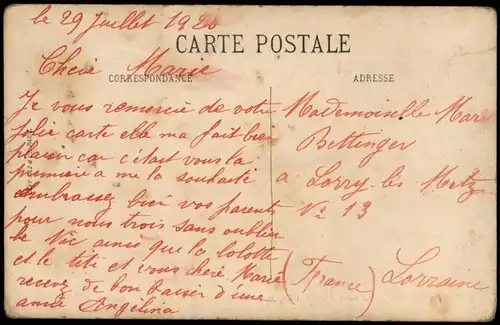 le 29 Juillet 1920
CARTE POSTALE
CORRESPONDANCE
ADRESSE
Chère Marie
Je vous remercie de votre
jolie carte elle ma fait bien
plaisir car c'était vous la
première a me la souhaité
Embrassez bien vos parents
pour nous trois sans oublier
le Vic ainsi que la lolotte
et le titi et vous chère Marie
recevez de bon baiser d'une
amie Angélina
Mademoiselle Marie
Bettinger
a Lorry-les-Metz
No 13
Lorraine
(France)